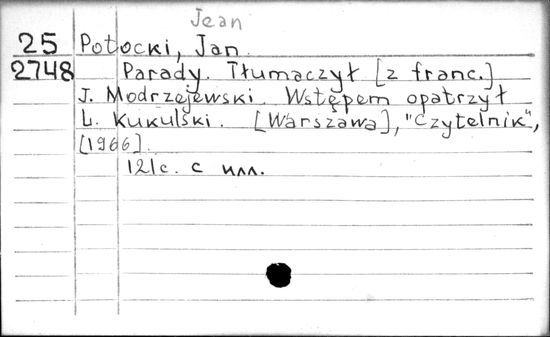 Jean
25 Potocki, Jan.
2748 Parady. Tłumaczył [z franc.]
J. Modrzejewski. Wstępem opatrzył
L. Kukulski. [Warszawa], "Czytelnik",
[1966].
121с. с илл.